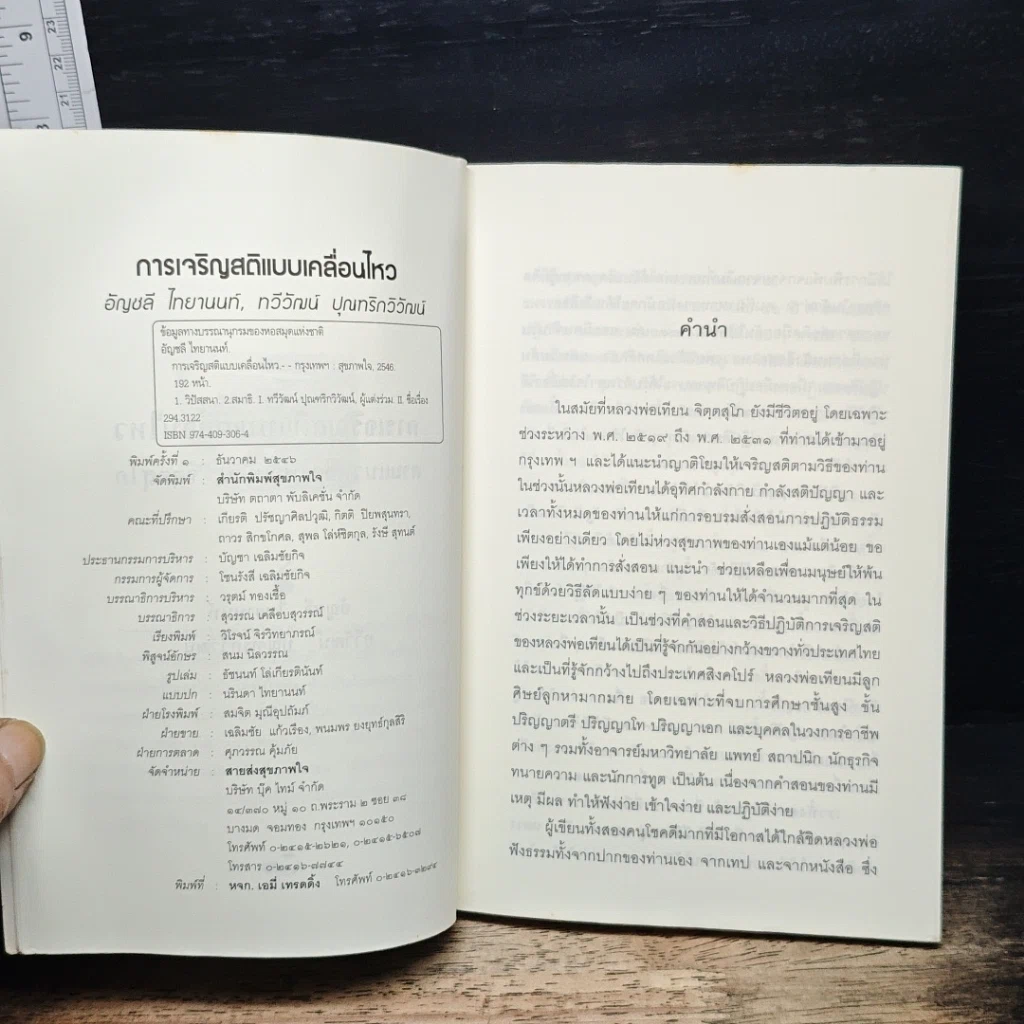 การเจริญสติแบบเคลื่อนไหว
อัญชลี ไทยานนท์, ทวีวัฒน์ ปุณฑริกวิวัฒน์
ข้อมูลทางบรรณานุกรมของหอสมุดแห่งชาติ
อัญชลี ไทยานนท์.
การเจริญสติแบบเคลื่อนไหว.- - กรุงเทพฯ : สุขภาพใจ, 2546.
192 หน้า.
1. วิปัสสนา. 2.สมาธิ. I. ทวีวัฒน์ ปุณฑริกวิวัฒน์, ผู้แต่งร่วม. II. ชื่อเรื่อง
294.3122
ISBN 974-409-306-4
พิมพ์ครั้งที่ ๑ : ธันวาคม ๒๕๔๖
จัดพิมพ์ : สำนักพิมพ์สุขภาพใจ
บริษัท ตถาตา พับลิเคชั่น จำกัด
คณะที่ปรึกษา : เกียรติ ปรัชญาศิลปวุฒิ, กิตติ ปิยพสุนทรา,
ถาวร สิกขโกศล, สุพล โล่ห์ชิตกุล, รังษี สุทนต์
ประธานกรรมการบริหาร : บัญชา เฉลิมชัยกิจ
กรรมการผู้จัดการ : โชนรังสี เฉลิมชัยกิจ
บรรณาธิการบริหาร : วรุตม์ ทองเชื้อ
บรรณาธิการ : สุวรรณ เคลือบสุวรรณ์
เรียงพิมพ์ : วิโรจน์ จิรวิทยาภรณ์
พิสูจน์อักษร : สนม นิลวรรณ
รูปเล่ม : ธัชนนท์ โล่เกียรตินันท์
แบบปก : นรินดา ไทยานนท์
ฝ่ายโรงพิมพ์ : สมจิต มุณีอุปถัมภ์
ฝ่ายขาย : เฉลิมชัย แก้วเรือง, พนมพร ยงยุทธ์กุลสิริ
ฝ่ายการตลาด : ศุภวรรณ คุ้มภัย
จัดจำหน่าย : สายส่งสุขภาพใจ
บริษัท บุ๊ค ไทม์ จำกัด
๑๔/๓๗๐ หมู่ ๑๐ ถ.พระราม ๒ ซอย ๓๘
บางมด จอมทอง กรุงเทพฯ ๑๐๑๕๐
โทรศัพท์ ๐-๒๔๑๕-๒๖๒๑, ๐-๒๔๑๕-๖๕๐๗
โทรสาร ๐-๒๔๑๖-๗๗๔๔
พิมพ์ที่ : หจก. เอมี่ เทรดดิ้ง โทรศัพท์ ๐-๒๔๑๖-๑๒๙๔
คำนำ
ในสมัยที่หลวงพ่อเทียน จิตฺตสุโภ ยังมีชีวิตอยู่ โดยเฉพาะ
ช่วงระหว่าง พ.ศ. ๒๕๑๙ ถึง พ.ศ. ๒๕๓๑ ที่ท่านได้เข้ามาอยู่
กรุงเทพ ฯ และได้แนะนำญาติโยมให้เจริญสติตามวิธีของท่าน
ในช่วงนั้นหลวงพ่อเทียนได้อุทิศกำลังกาย กำลังสติปัญญา และ
เวลาทั้งหมดของท่านให้แก่การอบรมสั่งสอนการปฏิบัติธรรม
เพียงอย่างเดียว โดยไม่ห่วงสุขภาพของท่านเองแม้แต่น้อย ขอ
เพียงให้ได้ทำการสั่งสอน แนะนำ ช่วยเหลือเพื่อนมนุษย์ให้พ้น
ทุกข์ด้วยวิธีลัดแบบง่าย ๆ ของท่านให้ได้จำนวนมากที่สุด ใน
ช่วงระยะเวลานั้น เป็นช่วงที่คำสอนและวิธีปฏิบัติการเจริญสติ
ของหลวงพ่อเทียนได้เป็นที่รู้จักกันอย่างกว้างขวางทั่วประเทศไทย
และเป็นที่รู้จักกว้างไปถึงประเทศสิงคโปร์ หลวงพ่อเทียนมีลูก
ศิษย์ลูกหามากมาย โดยเฉพาะที่จบการศึกษาชั้นสูง ชั้น
ปริญญาตรี ปริญญาโท ปริญญาเอก และบุคคลในวงการอาชีพ
ต่าง ๆ รวมทั้งอาจารย์มหาวิทยาลัย แพทย์ สถาปนิก นักธุรกิจ
ทนายความ และนักการทูต เป็นต้น เนื่องจากคำสอนของท่านมี
เหตุ มีผล ทำให้ฟังง่าย เข้าใจง่าย และปฏิบัติง่าย
ผู้เขียนทั้งสองคนโชคดีมากที่มีโอกาสได้ใกล้ชิดหลวงพ่อ
ฟังธรรมทั้งจากปากของท่านเอง จากเทป และจากหนังสือ ซึ่ง